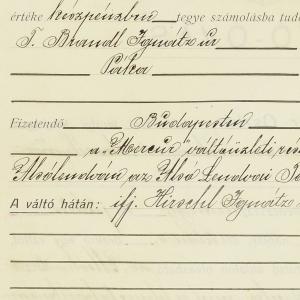 értéke készpénzben tegye számolásba tud
T. Brandl Ignátz úr
Páka
Fizetendő Budapesten
a „Mercur" váltóüzleti res
Alsólendván, az Alsó Lendvai
A váltó hátán: ifj. Hirschl Ignátz